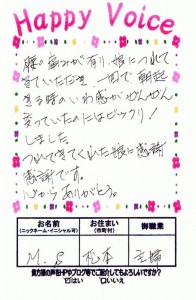 Happy Voice
腰の痛みが有り、娘につれて
きていただき、一回で朝起
きる時のいわ感がぜんぜん
変っていたのにはビックリ!
しました。
つれてきてくれた娘に感謝
感謝です。
心からありがとう。
お名前
(ニックネーム・イニシャル可)
お住まい
(市町村)
御職業
M.S
松本
主婦
貴方様の声をHPやブログ等でご紹介してもよろしいですか?
□はい □いいえ